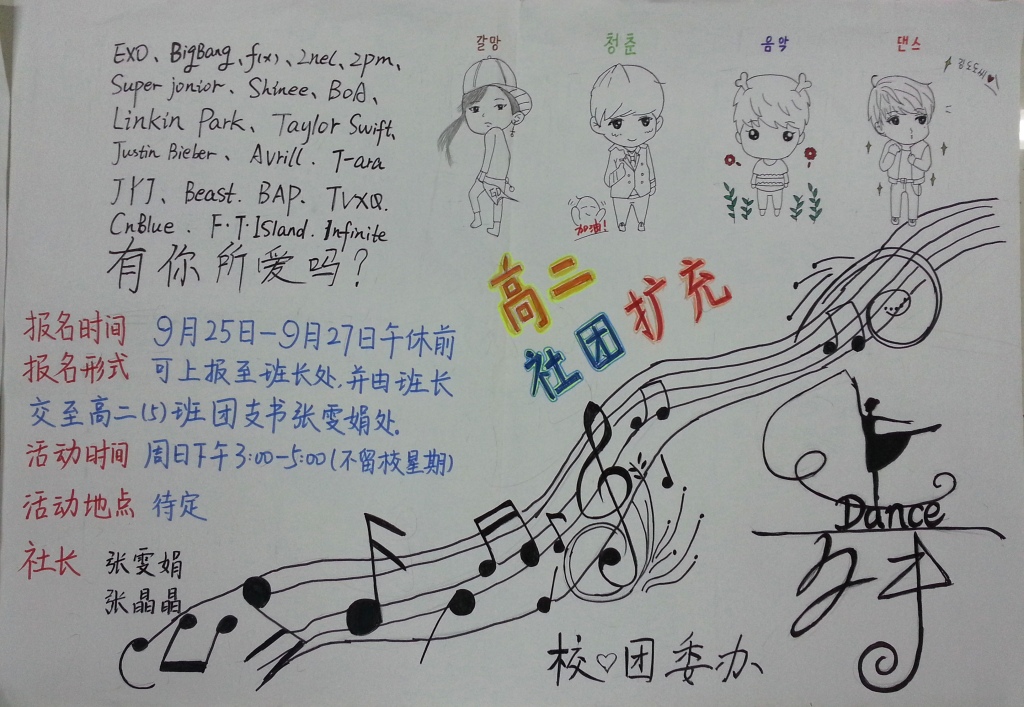 EXO、BigBang、f(x)、2ne1、2pm、
Super jonior、Shinee、BoA、
Linkin Park、Taylor Swift、
Justin Bieber、Avrill.T-ara
JYJ、Beast.BAP.TVXQ.
CnBlue.F·T·Island.Infinite
有你所爱吗?
갈망
청춘
음악
댄스
加油!
高二
社团扩充
报名时间 9月25日-9月27日午休前
报名形式 可上报至班长处.并由班长
交至高二(5)班团支书张雯娟处.
活动时间 周日下午3:00-5:00(不留校星期)
活动地点 待定
社长 张雯娟
张晶晶
Dance
校♡团委办